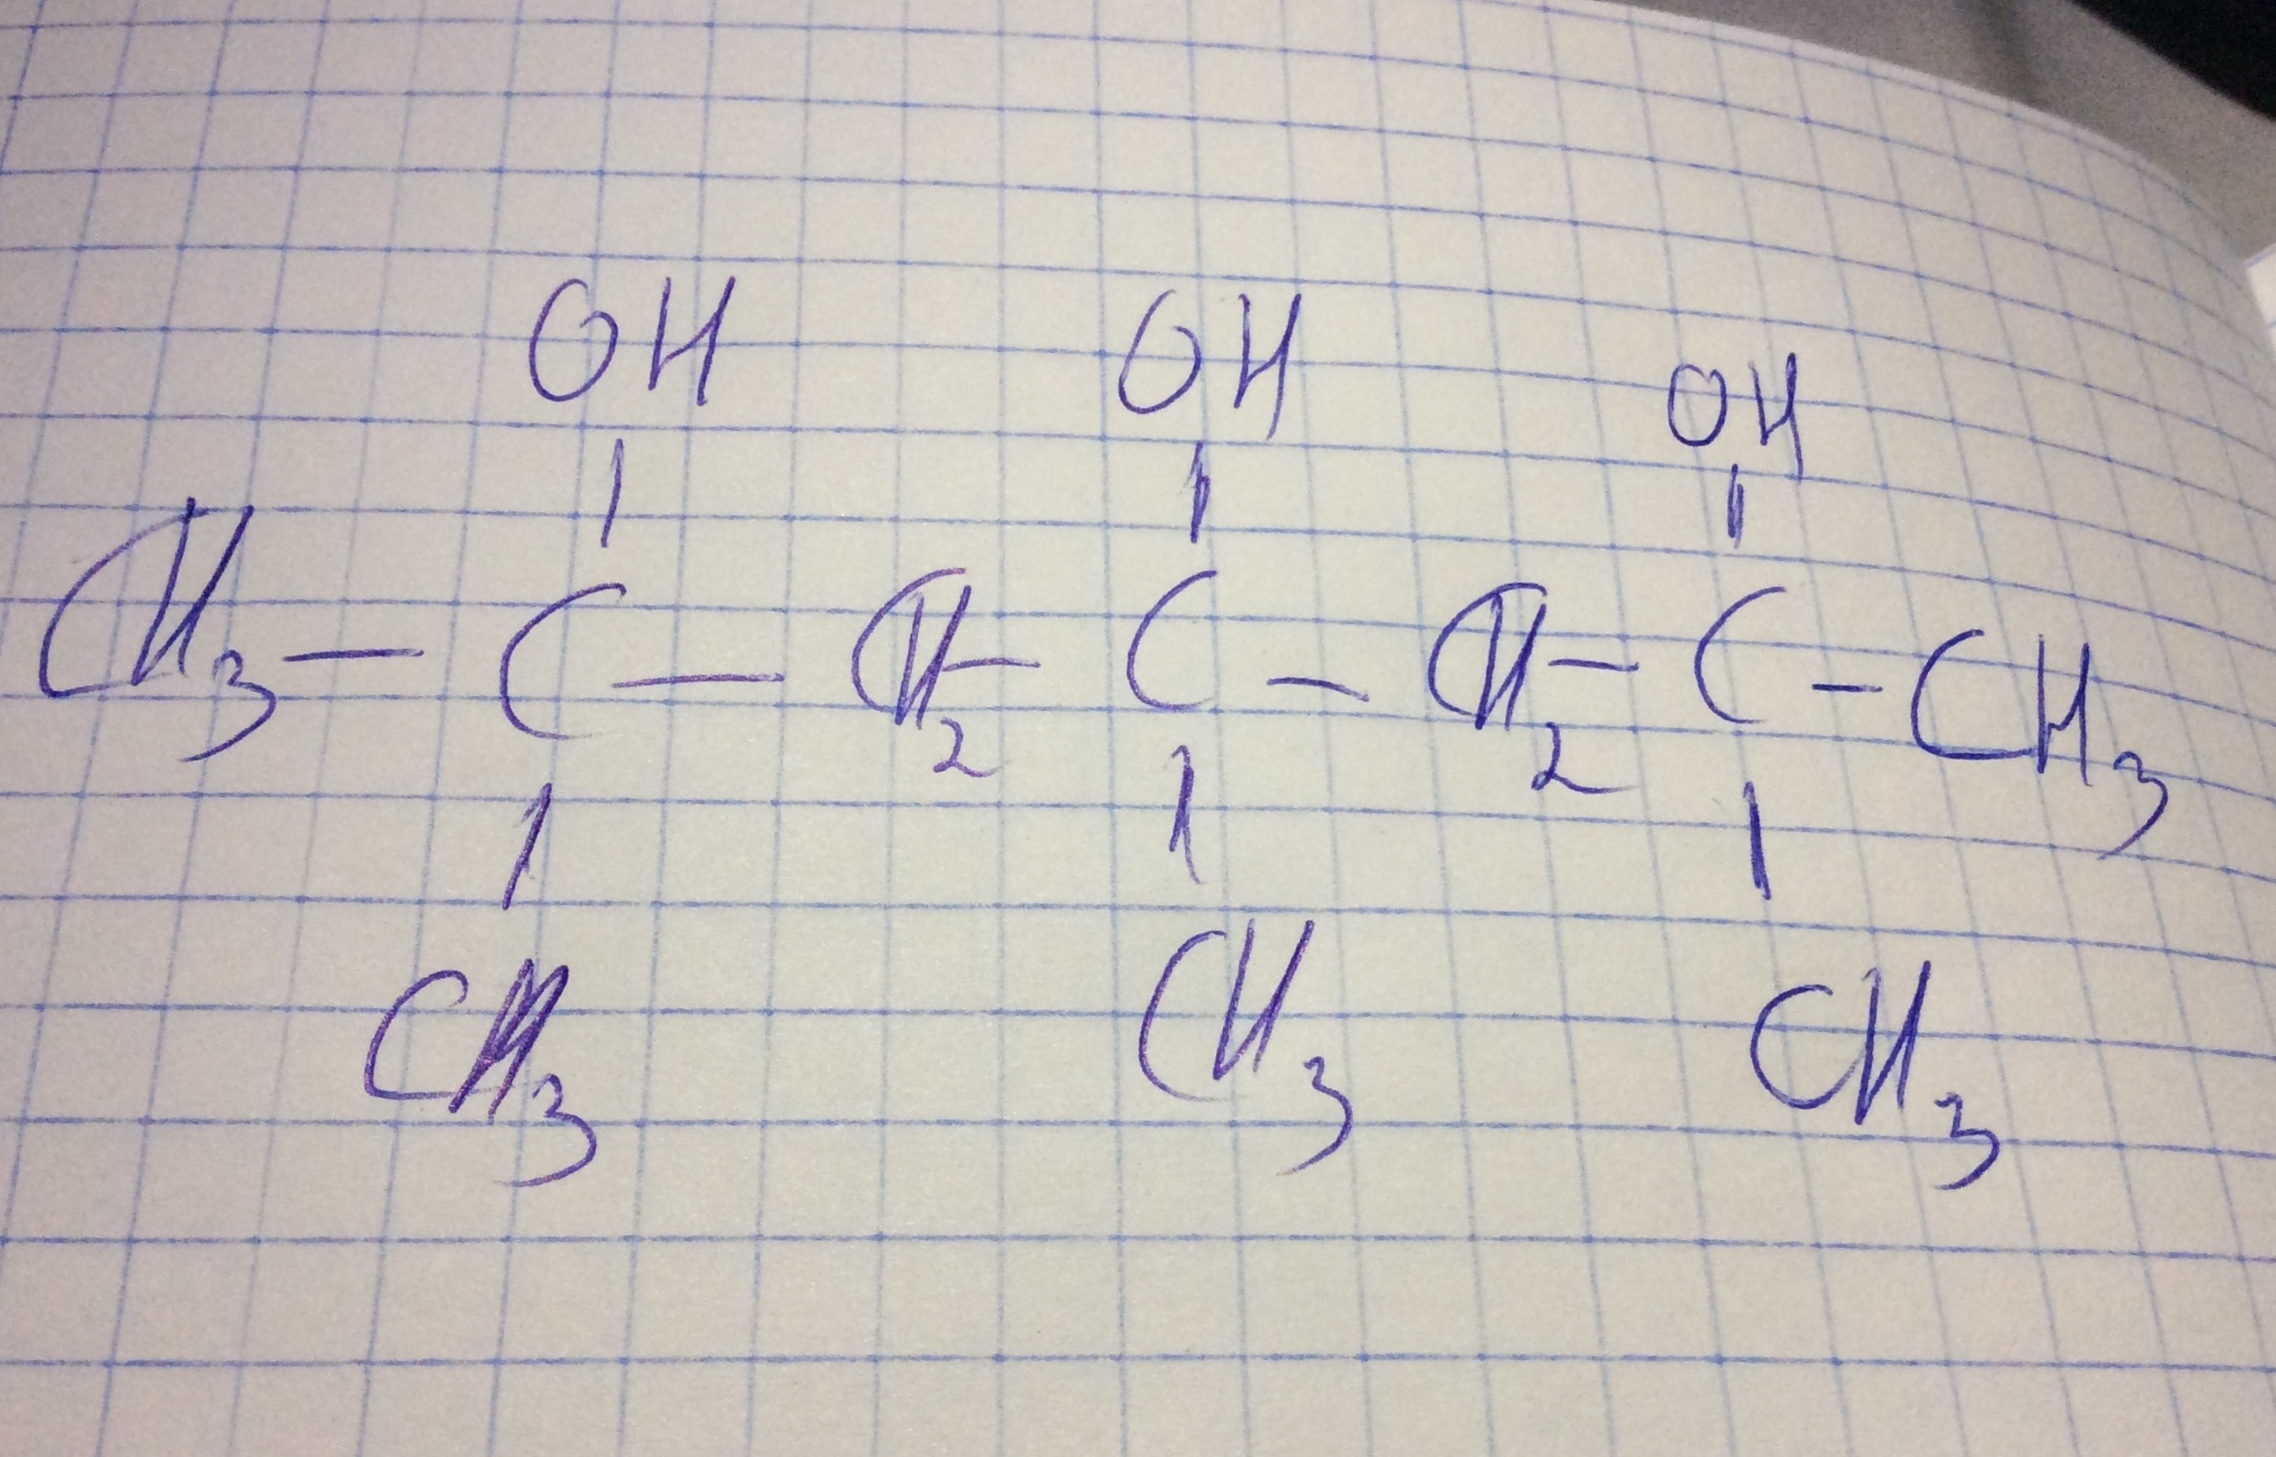 OH OH OH
CH3 — C — CH2 — C — CH2 — C — CH3
CH3 CH3 CH3